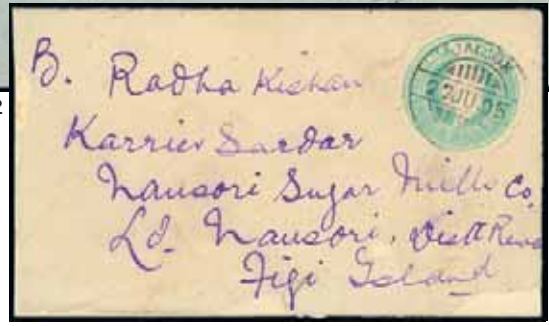 B. Radha Kishan
Karrier Sardar
Nausori Sugar Mills Co,
Ld. Nausori. Distt Rewa
Figi Island
2 JU 05